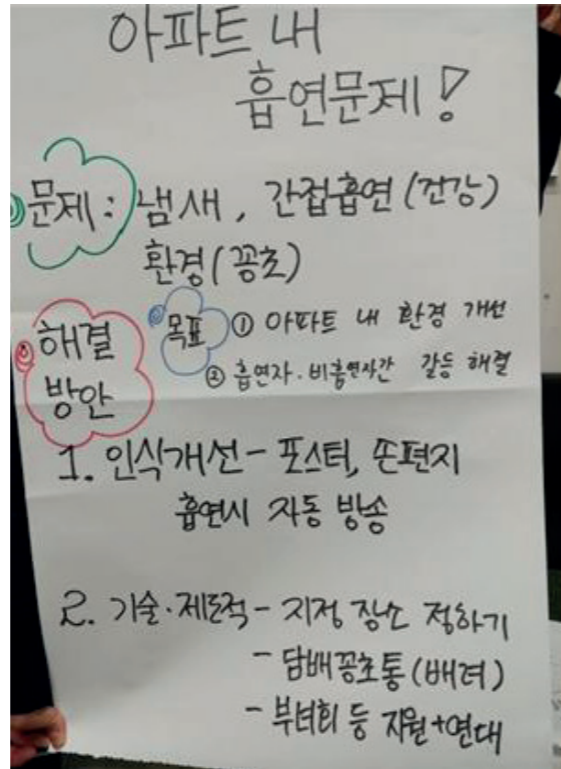 아파트 내
흡연문제!
문제: 냄새, 간접흡연(건강)
환경(꽁초)
해결
방안
목표 ① 아파트 내 환경 개선
② 흡연자·비흡연자간 갈등 해결
1. 인식개선 - 포스터, 손편지
흡연시 자동 방송
2. 기술·제도적 - 지정 장소 정하기
- 담배꽁초통(배려)
- 부녀회 등 지원+연대